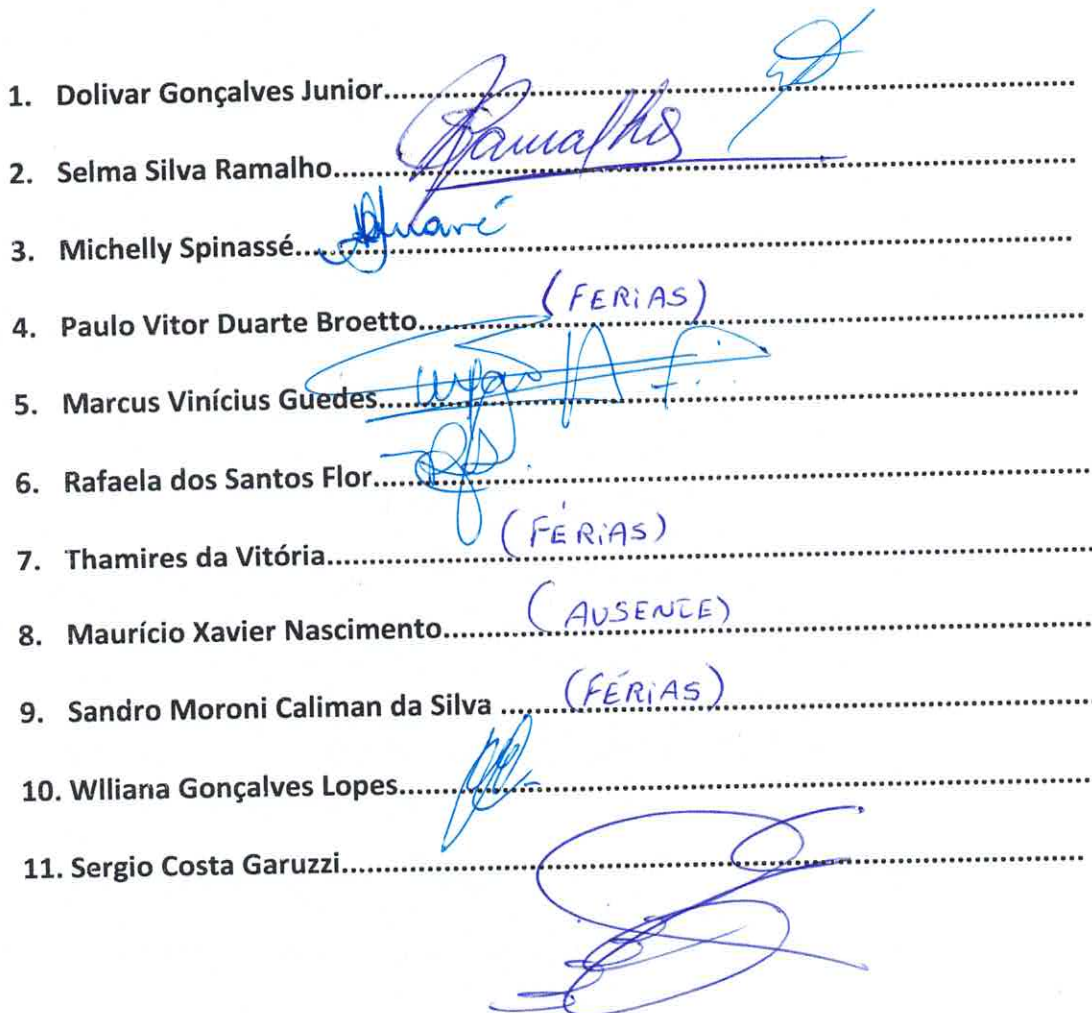 1. Dolivar Gonçalves Junior
2. Selma Silva Ramalho Ramalho
3. Michelly Spinassé
4. Paulo Vitor Duarte Broetto (FERIAS)
5. Marcus Vinícius Guedes
6. Rafaela dos Santos Flor
7. Thamires da Vitória (FÉRIAS)
8. Maurício Xavier Nascimento (AUSENTE)
9. Sandro Moroni Caliman da Silva (FÉRIAS)
10. Wlliana Gonçalves Lopes
11. Sergio Costa Garuzzi